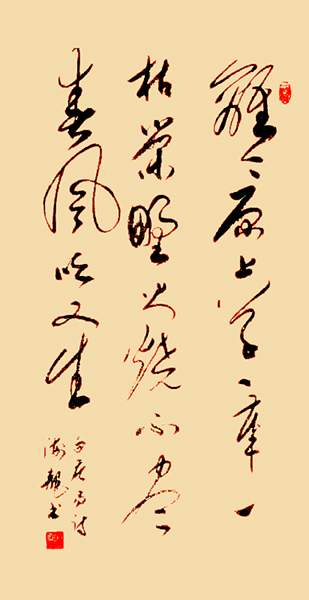 離離原上草一歲一
枯榮野火燒不盡
春風吹又生
白居易诗
海书